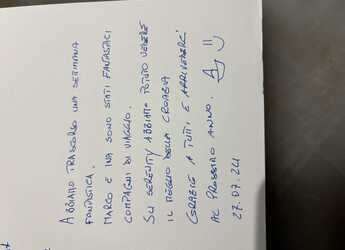 ABBIAMO TRASCORSO UNA SETTIMANA
FANTASTICA.
MARCO E INA SONO STATI FANTASTICI
COMPAGNI DI VIAGGIO.
SU SERENITY ABBIAMO POTUTO VEDERE
IL MEGLIO DELLA CROAZIA
GRAZIE A TUTTI E ARRIVEDERCI
AL PROSSIMO ANNO.
27.07.24